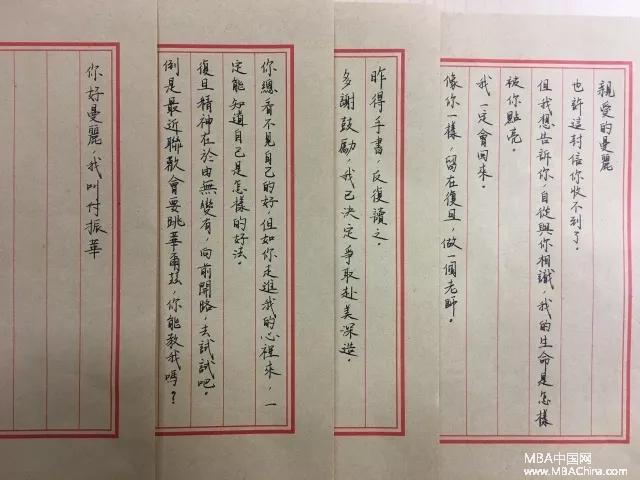 親愛的曼麗
也許這封信你收不到了。
但我想告訴你，自從與你相識，我的生命是怎樣
被你點亮。
我一定會回來。
像你一樣，留在復旦，做一個老師。
昨得手書，反復讀之。
多謝鼓勵，我已決定爭取赴美深造。
你總看不見自己的好，但如你走進我的心裡來，一
定能知道自己是怎樣的好法。
復旦精神在於由無變有，向前開路，去試試吧。
例是最近聯歡會要跳華爾茲，你能教我嗎？
你好曼麗，我叫付振華
MBA中国网
www.MBAChina.com